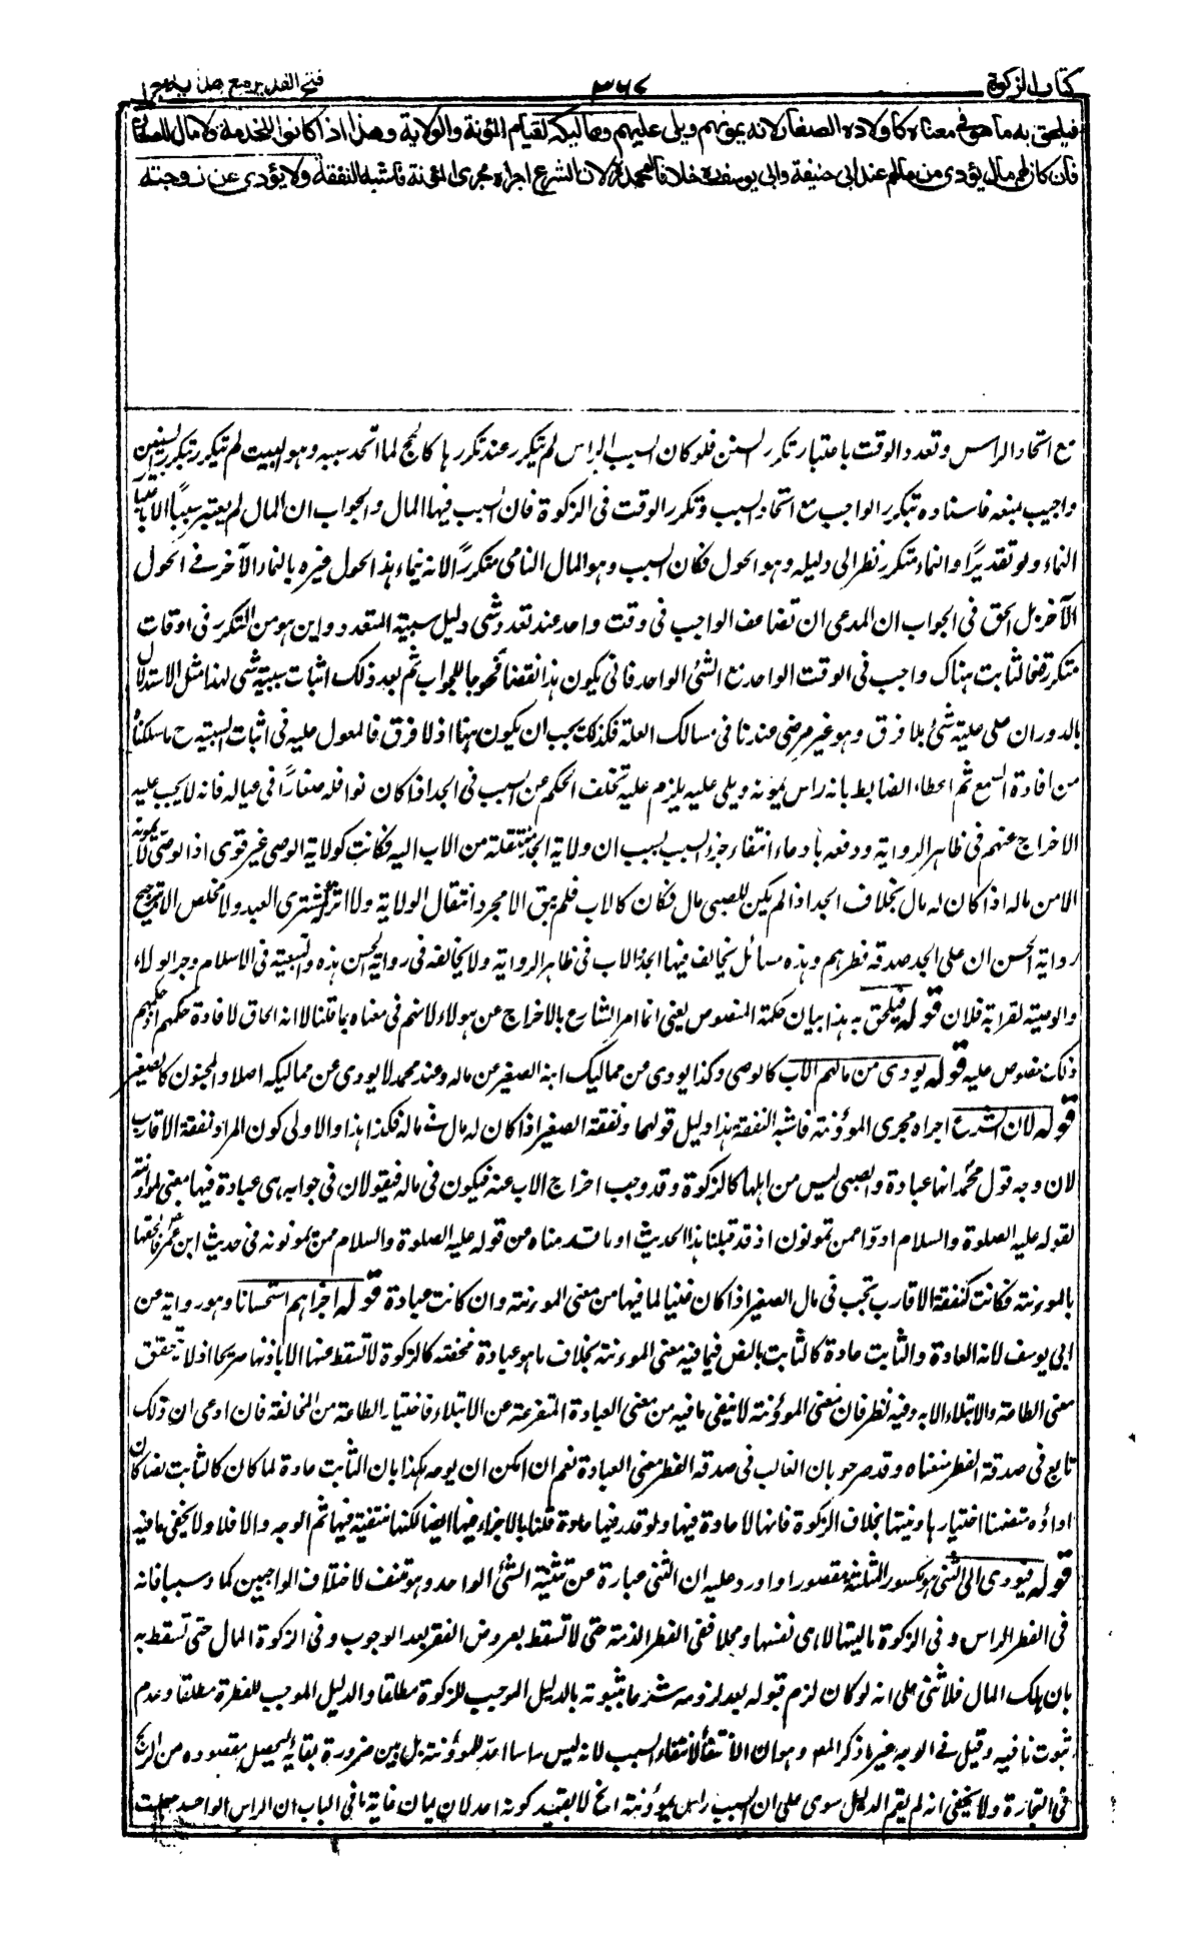 كتاب الزكوة
٣٦٧
فتح القدير مع هدايه ج ١
فيلحق به ما هو في معناه كأولاده الصغار لانه يمونهم ويلي عليهم ومماليكه لقيام المؤنة والولاية وهذا اذا كانوا للخدمة ولا مال للصغار
فان كان لهم مال يؤدى من مالهم عند ابى حنيفة وابى يوسف رح خلافا لمحمد رح لان الشرع اجراه مجرى المؤنة فاشبه النفقة ولا يؤدى عن زوجته
مع اتحاد الراس وتعدد الوقت باعتبار تكرر السنين فلو كان السبب الراس لم يتكرر عند تكررها كالحج لما اتحد سببه وهو البيت لم يتكرر بتكرر السنين
واجيب بمنعه فاسناده بتكرر الواجب مع اتحاد السبب وتكرر الوقت فى الزكوة فان السبب فيها المال والجواب ان المال لم يعتبر سببا الا باعتبار
النماء ولو تقديرًا والنماء متكرر نظرا الى دليله وهو الحول فكان السبب وهو المال النامى متكررًا لانه بنماء هذا الحول غيره بالنماء الآخر فى الحول
الآخر بل الحق فى الجواب ان المدعى ان تضاعف الواجب فى وقت واحد عند تعدد شئ دليل سببية المتعدد واين هو من التكرر فى اوقات
متكررة فالثابت هناك واجب فى الوقت الواحد مع الشئ الواحد فانى يكون هذا نقضا محوجا للجواب ثم بعد ذلك اثبات سببية شئ لهذا مثل الاستدلال
بالدوران على علية شئ بلا فرق وهو غير مرضى عندنا فى مسالك العلة فكذلك يجب ان يكون هنا اذ لا فرق فالمعول عليه فى اثبات السببية ح ما سلكناه
من افادة السمع ثم اعطاء الضابط بانه راس يمونه ويلى عليه يلزم عليه تخلف الحكم عن السبب فى الجد اذا كان نوافله صغارًا فى عياله فانه لا يجب عليه
الاخراج عنهم فى ظاهر الرواية ودفعه بادعاء انتفاء جزء السبب بسبب ان ولاية الجد منتقلة من الاب اليه فكانت كولاية الوصى غير قوى اذ الوصى لا يمونه
الا من ماله اذا كان له مال بخلاف الجد اذا لم يكن للصبى مال فكان كالاب فلم يبق الا مجرد انتقال الولاية ولا اثر له كمشترى العبد ولا مخلص الا بترجيح
رواية الحسن ان على الجد صدقة فطرهم وهذه مسائل يخالف فيها الجد الاب فى ظاهر الرواية ولا يخالفه فى رواية الحسن هذه والتبعية فى الاسلام وجر الولاء
والوصية لقرابة فلان قوله فيلحق به هذا بيان حكمة المنصوص يعنى انما امر الشارع بالاخراج عن هولاء لانهم فى معناه بما قلنا لا انه الحاق لافادة حكمهم اذ حكمهم
ذلك منصوص عليه قوله يودى من مالهم الاب كالوصى وكذا يودى من مماليك ابنه الصغير من ماله وعند محمد لا يودى عن مماليكه اصلا والمجنون كالصغير
قوله لان الشرع اجراه مجرى المؤونة فاشبه النفقة هذا دليل قولهما ونفقة الصغير اذا كان له مال فى ماله فكذا هذا والاولى كون المراد نفقة الاقارب
لان وجه قول محمد انها عبادة والصبى ليس من اهلها كالزكوة وقد وجب اخراج الاب عنه فيكون فى ماله فيقولان فى جوابه هى عبادة فيها معنى المؤونة
لقوله عليه الصلوة والسلام ادوا عمن تمونون اذ قد قبلنا هذا الحديث او ما قدمناه من قوله عليه الصلوة والسلام ممن تمونونه فى حديث ابن عمر فالحقها
بالموونة فكانت كنفقة الاقارب تجب فى مال الصغير اذا كان غنيا لما فيها من معنى الموونة وان كانت عبادة قوله اجزاهم استحسانا وهو رواية عن
ابى يوسف لانه العادة والثابت عادة كالثابت بالنص فيما فيه معنى الموونة بخلاف ما هو عبادة محضة كالزكوة لا تسقط عنها الا باذنها صريحا اذ لا يتحقق
معنى الطاعة والابتلاء الا به وفيه نظر فان معنى المؤونة لا ينفى ما فيه من معنى العبادة المتفرعة عن الابتلاء فاختيار الطاعة من المخالفة فان ادعى ان ذلك
تابع فى صدقة الفطر منعناه وقد صرحوا بان الغالب فى صدقة الفطر معنى العبادة نعم ان امكن ان يوجه هكذا بان الثابت عادة لما كان كالثابت نصا كان
اداؤه متضمنا اختيارها ونيتها بخلاف الزكوة فانها لا عادة فيها ولو قدر فيها عادة قلنا بالاجزاء فيها ايضا لكنها منتفية فيها ثم الوجه والا فلا ولا يخفى ما فيه
قوله فيودى الى الثنى هو مكسور المثلثة مقصورا واورد عليه ان الثنى عبارة عن تثنية الشئ الواحد وهو منتف لاختلاف الواجبين كما وسببا فانه
فى الفطر الراس وفى الزكوة ماليتها لا هى نفسها ومحلا ففى الفطر الذمة حتى لا تسقط بعروض الفقر بعد الوجوب وفى الزكوة المال حتى تسقط به
بان هلك المال فلا ثنى على انه لو كان لزم قبوله بعد لزومه شرعا بثبوته بالدليل الموجب للزكوة مطلقا والدليل الموجب للفطرة مطلقا وعدم
ثبوت نافيه وقيل فى الوجه غير ما ذكر المصـ وهو ان الانتفاء لانتفاء السبب لانه ليس راسا اعد للمؤونة بل بين ضرورة بقائه ليحصل مقصوده من الربح
فى التجارة ولا يخفى انه لم يقم الدليل سوى على ان السبب راس يمونه الخ لا بقيد كونه اعد لان يمان غاية ما فى الباب ان الراس الواحد جعلت